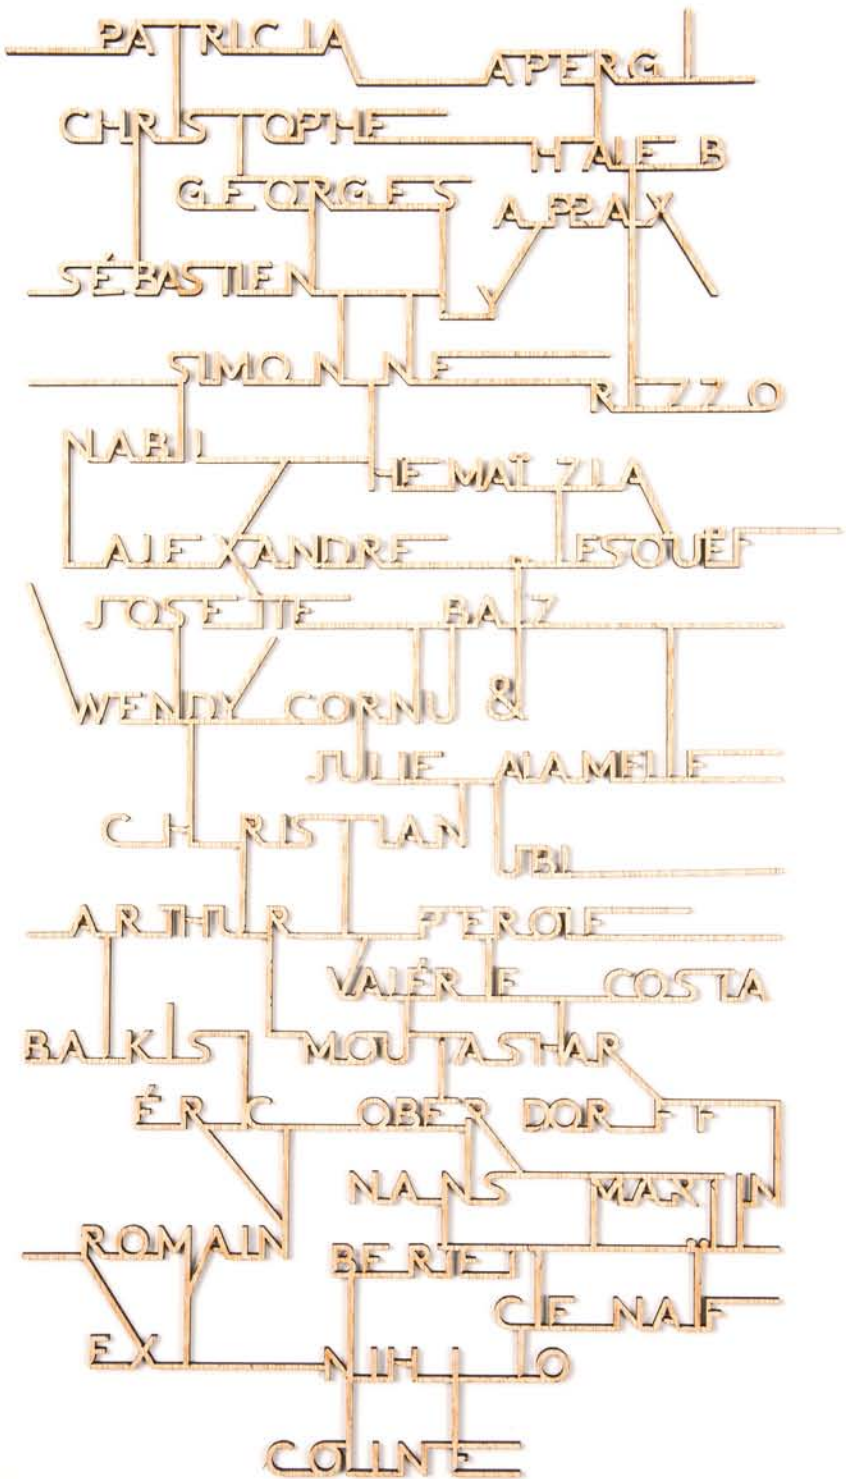 PATRICIA APERGI
CHRISTOPHE HALEB
GEORGES APPAIX
SÉBASTIEN LY
SIMONNE RIZZO
NABIL HEMAÏZIA
ALEXANDRE LESOUËF
JOSETTE BAÏZ
WENDY CORNU &
JULIE ALAMELLE
CHRISTIAN UBL
ARTHUR PEROLE
VALÉRIE COSTA
BAKIS MOUTASHAR
ÉRIC OBERDORFF
NANS MARTIN
ROMAIN BERTET
CIE NAÏF
EX NIHILO
COLINE